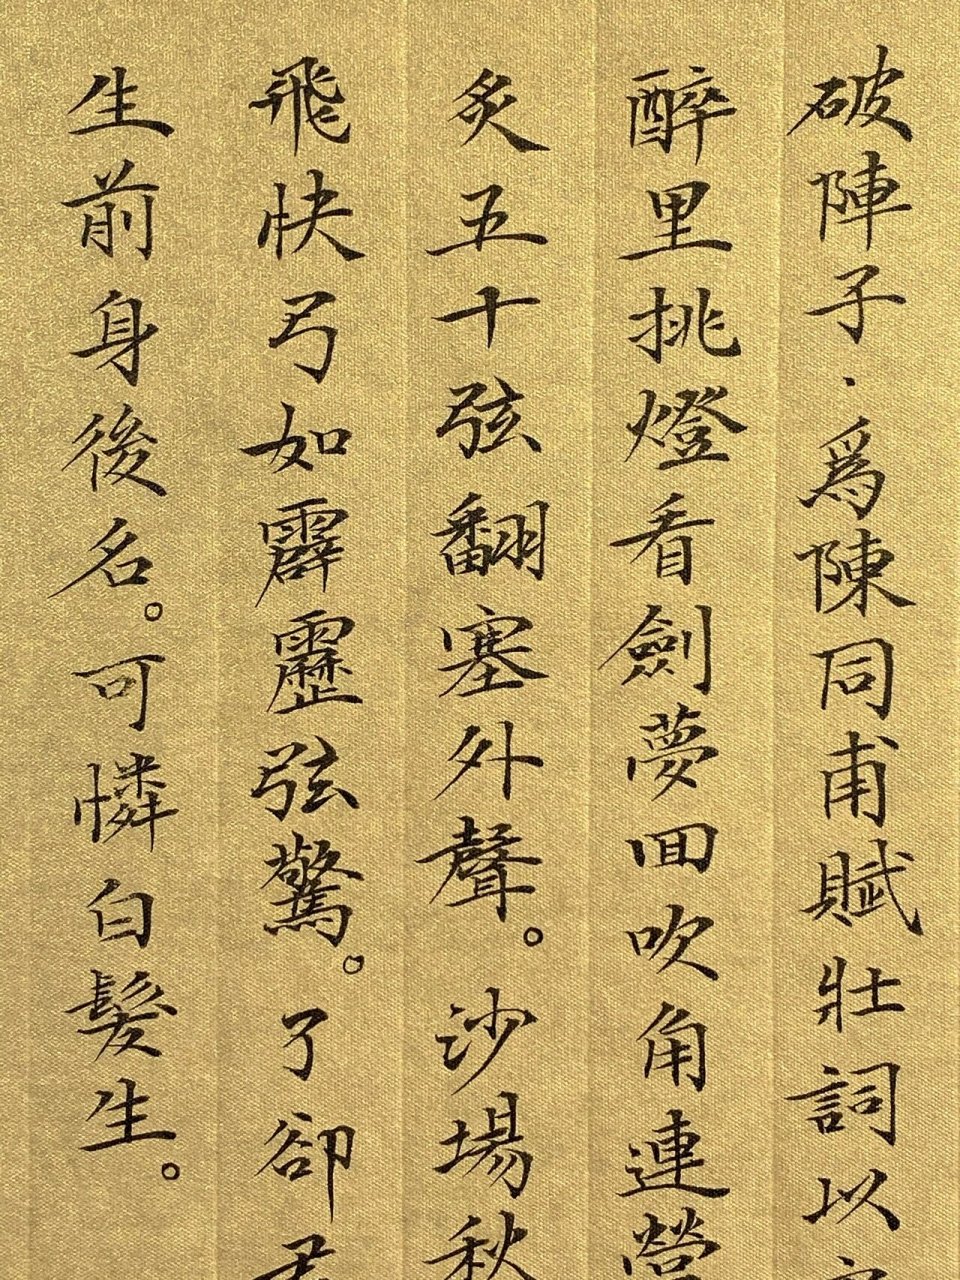 破陣子·爲陳同甫賦壯詞以
醉里挑燈看劍夢回吹角連營
炙五十弦翻塞外聲。沙場秋
飛快弓如霹靂弦驚。了卻君
生前身後名。可憐白髮生。